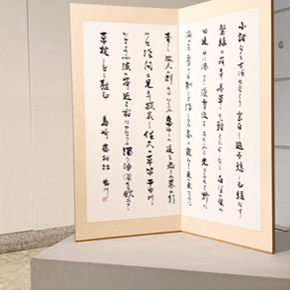 小諸なる古城のほとり 雲白く遊子悲しむ 緑なす
繁縷は萌えず 若草も藉くによしなし しろがねの衾の
岡邊 日に溶けて淡雪流る あたゝかき光はあれど 野に
満つる香も知らず 浅くのみ春は霞みて 麦の色わづかに
青し 旅人の群はいくつか 畠中の道を急ぎぬ 暮れ行
けば浅間も見えず 歌哀し 佐久の草笛 千曲川
いざよふ波の岸近き宿にのぼりつ 濁り酒濁れる飲みて
草枕しばし慰む 島崎藤村詩